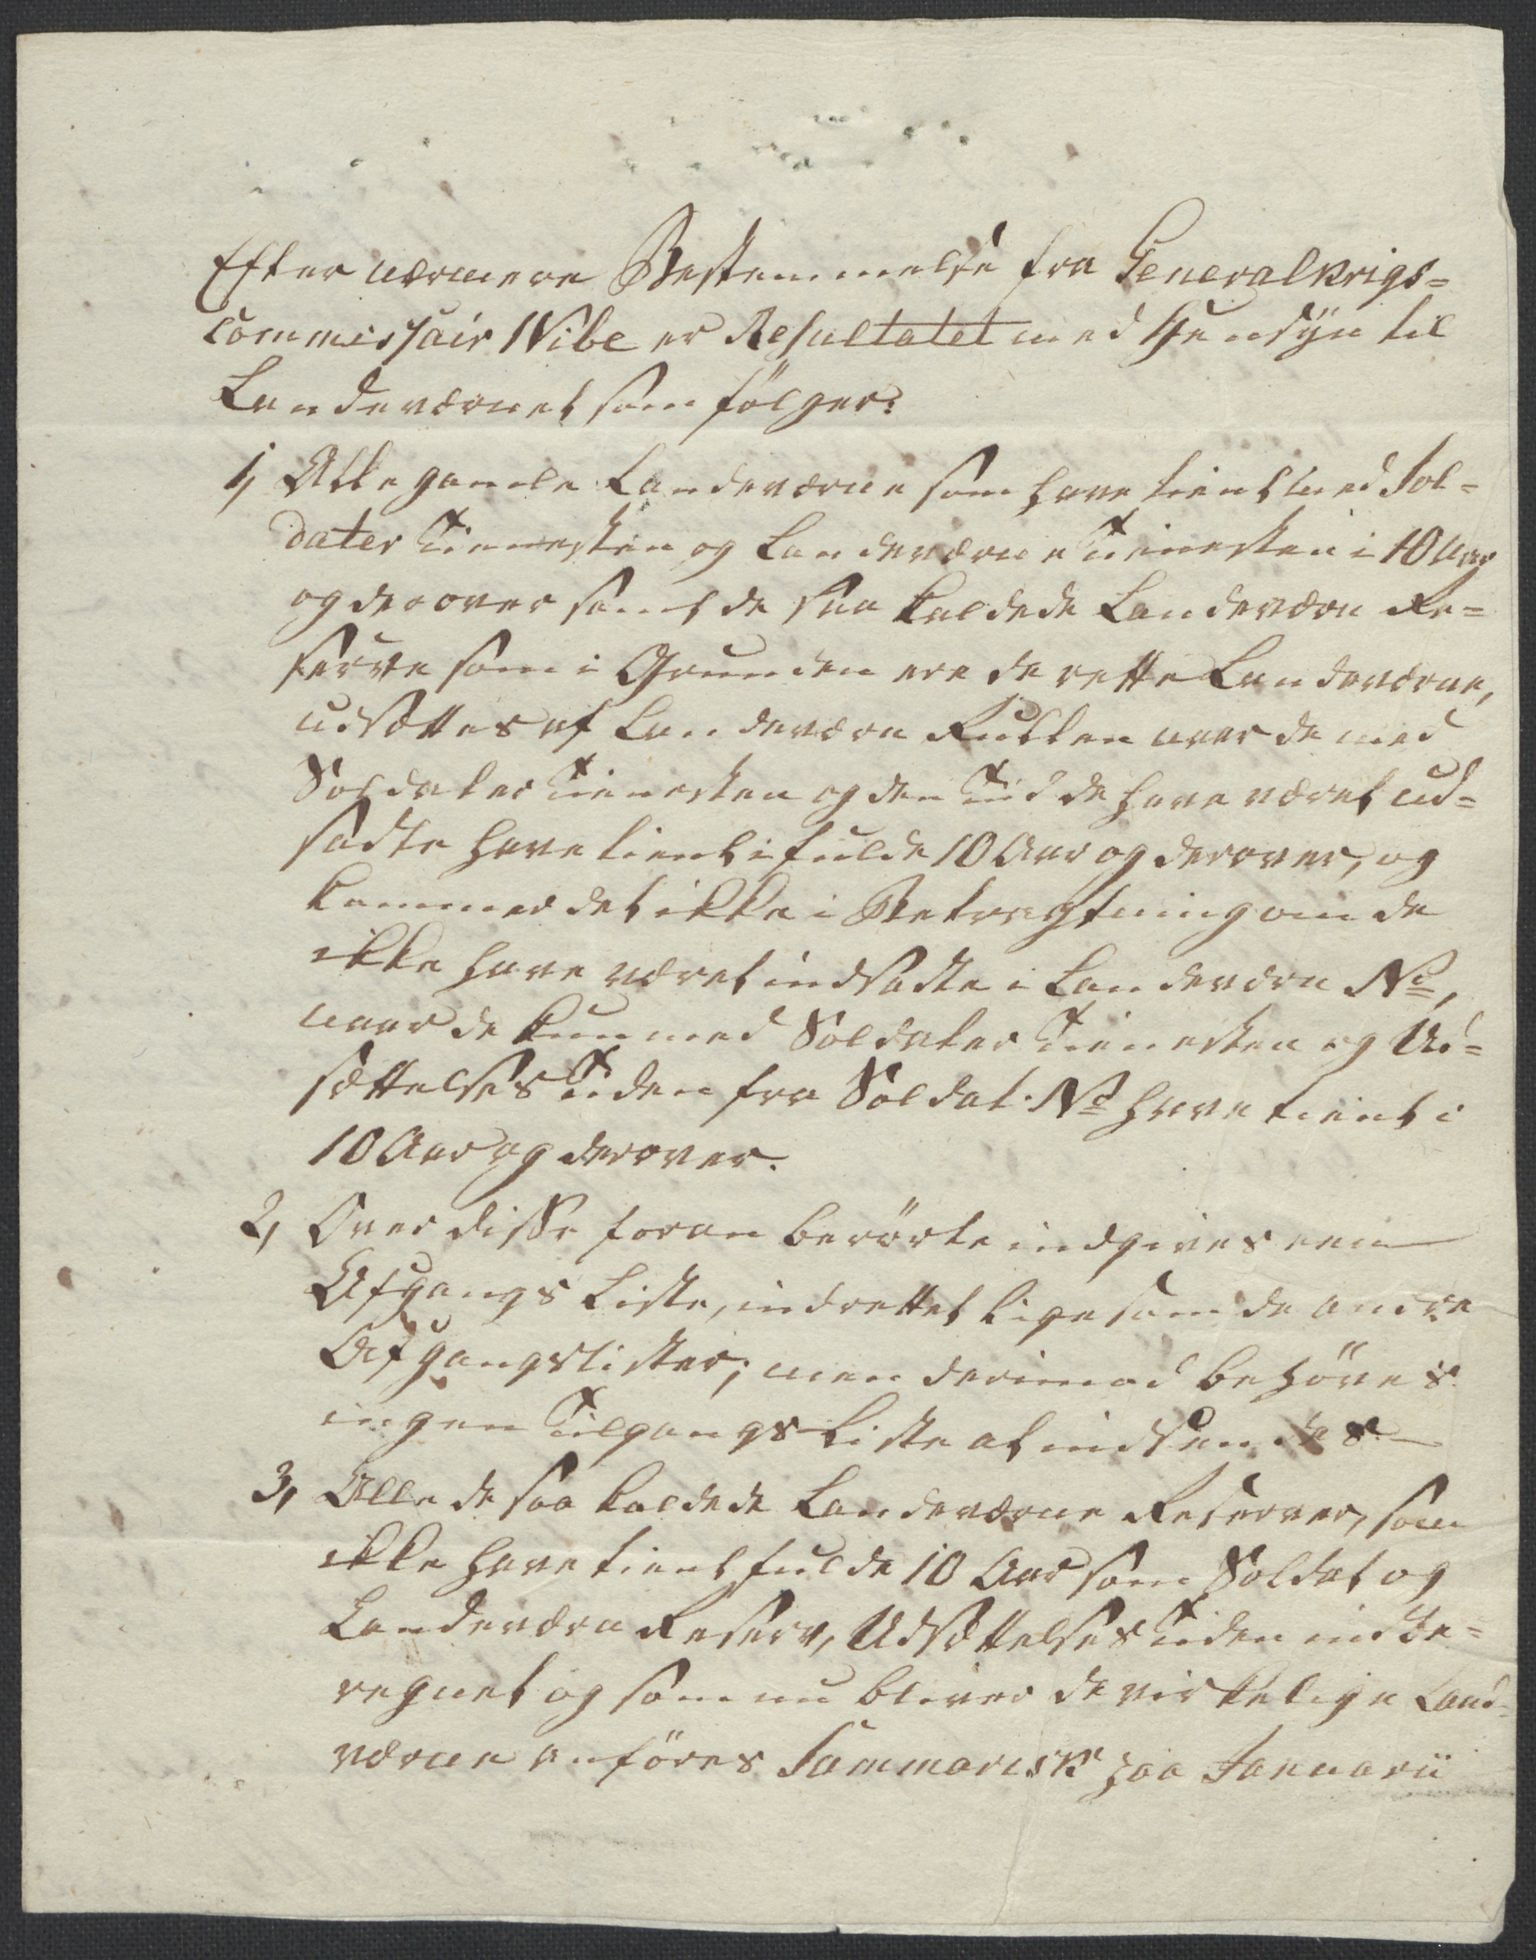 Efter nærmere Bestemmelse fra Generalkrigs=
commissair Wibe er Resultatet med Hensÿn til
Landeværnet som følger:
1, Alle gamle Landeværne som have tient med Sol=
dater Tienesten og Landeværne Tienesten i 10 Aar
og derover samt de saa kaldede Landeværn Re=
serve som i Grunden ere de rette Landeværne,
udsættes af Landeværn Rullen naar de med
Soldater Tienesten og den Tid de have været ud=
sadte have tient i fulde 10 Aar og derover, og
kommer det ikke i Betragtning om de
ikke have været indsadte i Landeværn No,
naar de kun med Soldater Tienesten og Ud=
sættelses Tiden fra Soldat No have tient i
10 Aar og derover.
2, Over disse foran berørte indgives een
Afgangs Liste, indrettet ligesom de andre
Afgangslister; men derimod behøves
ingen Tilgangs Liste at indsendes
3, Alle de saa kaldede Landeværne Reserver, som
ikke have tient fulde 10 Aar som Soldat og
Landeværn Reserv, Udsættelses Tiden indbe=
regnet og som nu bliver de virkelige Land=
værne anføres Sammarisk paa Januarii